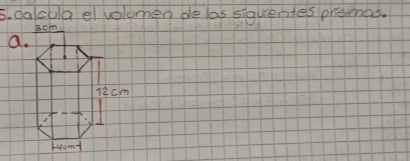 5. calcula el volumen de los siguientes prismas.
3cm
a.
12 cm
4cm